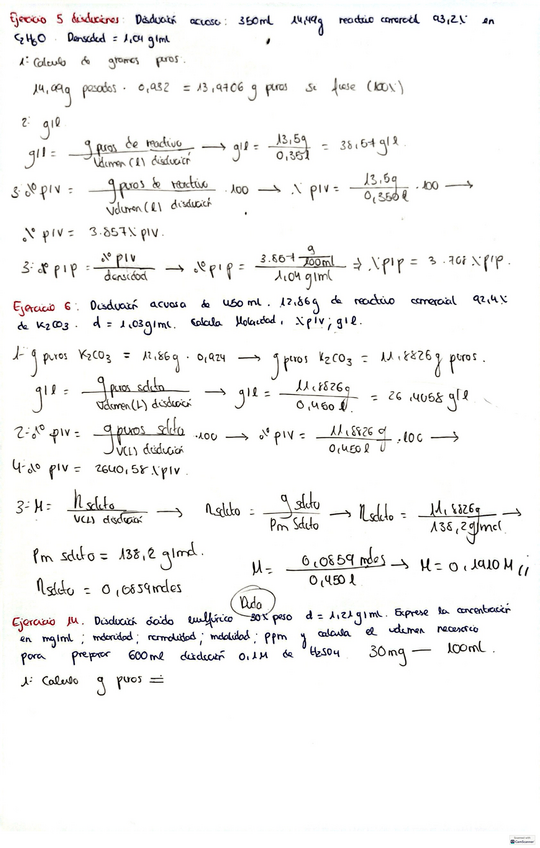 Ejercicio 5 disoluciones: Disolución acuosa: 350ml 14,49g reactivo comercial 93,2% en
C2H6O. Densidad = 1,04 g/ml
1: Calculo de gramos puros.
14,49g pesados · 0,932 = 13,4706 g puros si fuese (100%)
2: g/l
g/l = g puros de reactivo / Volumen (l) disolución → g/l = 13,5g / 0,35l = 38,57 g/l
3: % p/v = g puros de reactivo / Volumen (l) disolución · 100 → % p/v = 13,5g / 0,350l · 100 →
% p/v = 3.857% p/v.
3: % p/p = % p/v / densidad → % p/p = 3.857 g/100ml / 1,04 g/ml ⇒ % p/p = 3.708 % p/p.
Ejercicio 6: Disolución acuosa de 450 ml. 12,86g de reactivo comercial 92,4%
de K2CO3. d = 1,03g/ml. Calcula Molaridad, % p/v; g/l.
1- g puros K2CO3 = 12,86g · 0,924 → g puros K2CO3 = 11,8826g puros.
g/l = g puros soluto / Volumen (L) disolución → g/l = 11,8826g / 0,450 l = 26,4058 g/l
2: % p/v = g puros soluto / V(L) disolución · 100 → % p/v = 11,8826 g / 0,450 l · 100 →
4: % p/v = 2640,58 % p/v.
3: M = n soluto / V(L) disolución → n soluto = g soluto / Pm soluto → n soluto = 11,8826g / 138,2g/mol →
Pm soluto = 138,2 g/mol.
M = 0,0859 moles / 0,450 l → M = 0,1910 M
n soluto = 0,0859 moles
Duda
Ejercicio 14. Disolución ácido sulfúrico 30% peso d = 1,21 g/ml. Exprese la concentración
en mg/ml; molaridad; normalidad; molalidad; ppm y calcula el volumen necesario
para preparar 600ml disolución 0,1M de H2SO4. 30mg — 100ml.
1: Calculo g puros =
CamScanner